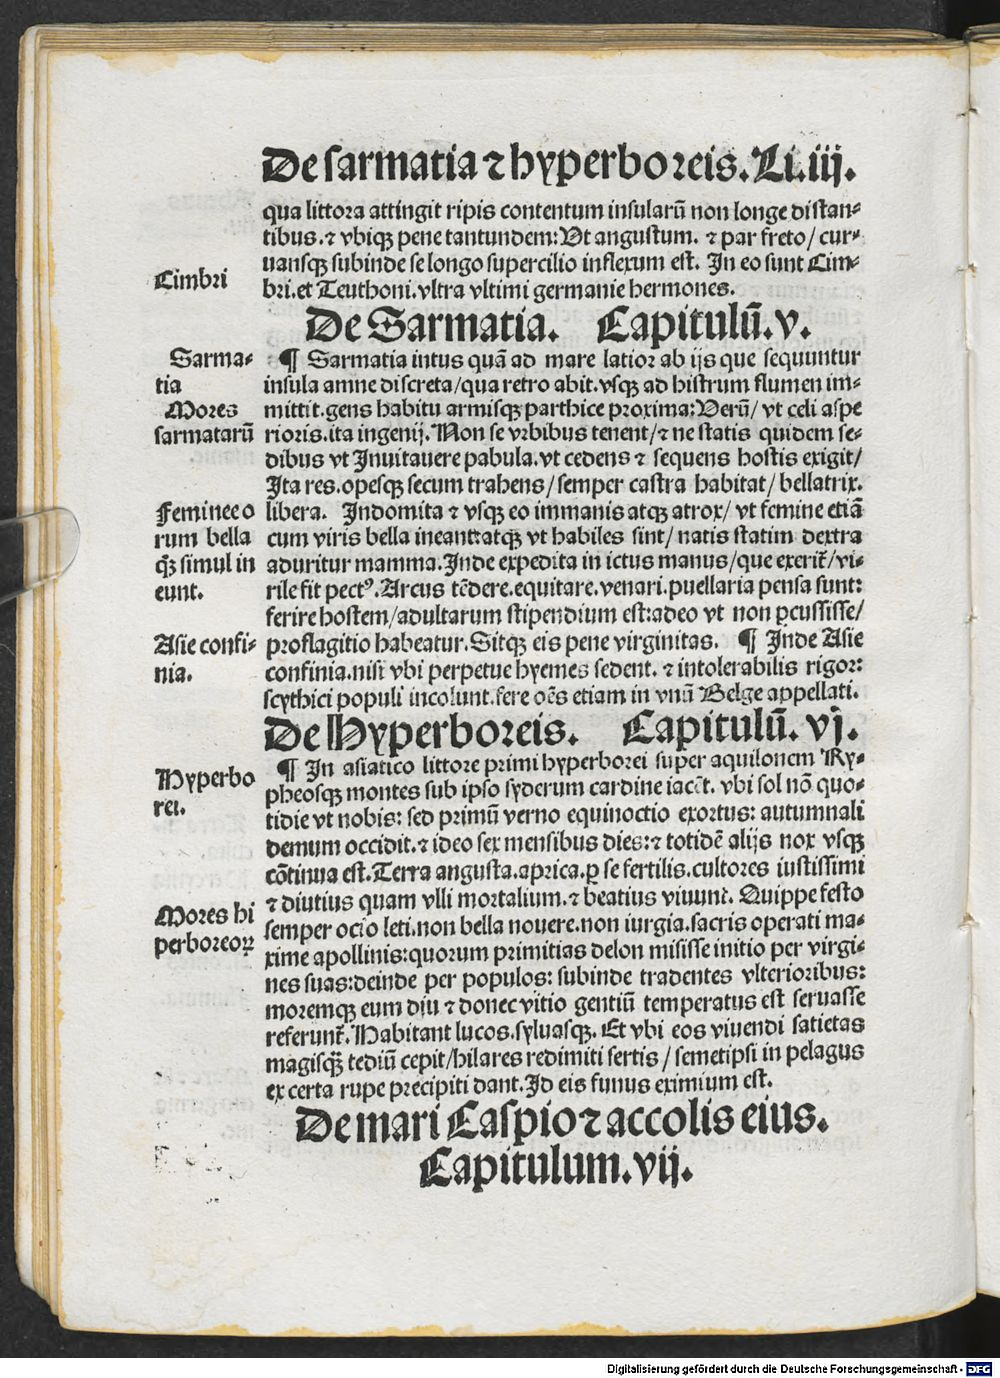 De sarmatia ⁊ hyperboreis. Li.iij.
qua littora attingit ripis contentum insularū non longe distan-
tibus.⁊ vbiqꝫ pene tantundem: Vt angustum. ⁊ par freto/ cur-
uansqꝫ subinde se longo supercilio inflexum est. In eo sunt Cim-
Cimbri
bri.et Teuthoni.vltra vltimi germanie hermones.
De Sarmatia. Capitulū.v.
Sarma-
tia
Mores
sarmatarū
¶ Sarmatia intus quā ad mare latior ab ijs que sequuntur
insula amne discreta/qua retro abit.vsqꝫ ad histrum flumen im-
mittit.gens habitu armisqꝫ parthice proxima: Verū/ vt celi aspe
rioris.ita ingenij. Non se vrbibus tenent/⁊ ne statis quidem se-
dibus vt Inuitauere pabula.vt cedens ⁊ sequens hostis exigit/
Ita res.opesqꝫ secum trahens/semper castra habitat/ bellatrix.
Feminee o
rum bella
qꝫ̄ simul in
eunt.
libera. Indomita ⁊ vsqꝫ eo immanis atqꝫ atrox/ vt femine etiā
cum viris bella ineant:atqꝫ vt habiles sint/ natis statim dextra
aduritur mamma. Inde expedita in ictus manus/que exerit̄/vi-
rile fit pectꝰ. Arcus tēdere.equitare.venari.puellaria pensa sunt:
ferire hostem/adultarum stipendium est:adeo vt non ꝑcussisse/
Asie confi-
nia.
proflagitio habeatur. Sitqꝫ eis pene virginitas. ¶ Inde Asie
confinia.nisi vbi perpetue hyemes sedent. ⁊ intolerabilis rigor:
scythici populi incolunt.fere oēs etiam in vnū Belge appellati.
De Hyperboreis. Capitulū. vj.
Hyperbo
rei.
¶ In asiatico littore primi hyperborei super aquilonem Ry-
pheosqꝫ montes sub ipso syderum cardine iacēt. vbi sol nō quo-
tidie vt nobis: sed primū verno equinoctio exortus: autumnali
demum occidit.⁊ ideo sex mensibus dies:⁊ totidē alijs nox vsqꝫ
cōtinua est. Terra angusta.aprica.ꝑ se fertilis.cultores iustissimi
⁊ diutius quam vlli mortalium.⁊ beatius viuunt. Quippe festo
Mores hi
perboreoꝝ
semper ocio leti.non bella nouere.non iurgia.sacris operati ma-
xime apollinis:quorum primitias delon misisse initio per virgi-
nes suas:deinde per populos: subinde tradentes vlterioribus:
moremqꝫ eum diu ⁊ donec vitio gentiū temperatus est seruasse
referunt̄. Habitant lucos.syluasqꝫ. Et vbi eos viuendi satietas
magisqꝫ̄ tediū cepit/hilares redimiti sertis/ semetipsi in pelagus
ex certa rupe precipiti dant. Id eis funus eximium est.
De mari Caspio ⁊ accolis eius.
Capitulum.vij.
Digitalisierung gefördert durch die Deutsche Forschungsgemeinschaft - DFG